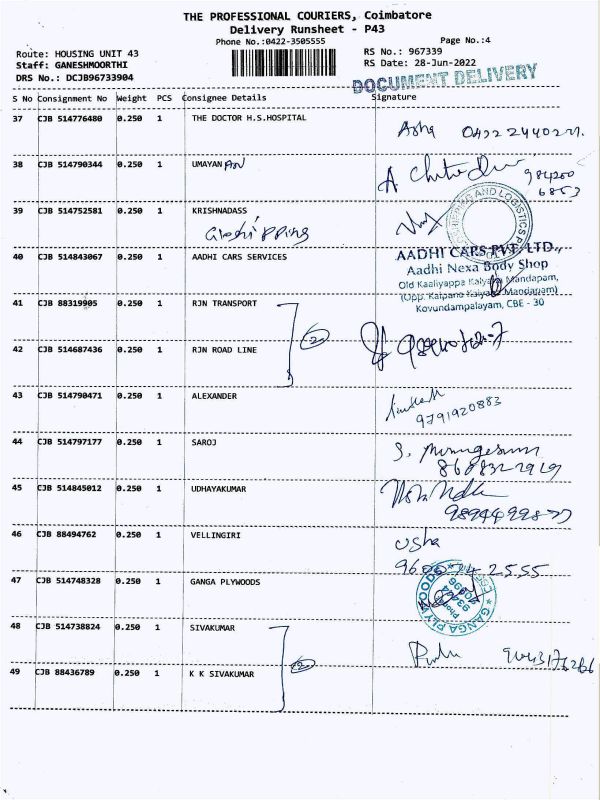 THE PROFESSIONAL COURIERS, Coimbatore
Delivery Runsheet - P43
Phone No.:0422-3505555
Page No.:4
Route: HOUSING UNIT 43
RS No.: 967339
Staff: GANESHMOORTHI
RS Date: 28-Jun-2022
DRS No.: DCJB96733904
DOCUMENT DELIVERY
S No Consignment No Weight PCS Consignee Details Signature
37 CJB 514776480 0.250 1 THE DOCTOR H.S.HOSPITAL
Asha
38 CJB 514790344 0.250 1 UMAYAN
984200
6853
39 CJB 514752581 0.250 1 KRISHNADASS
SHIPPING AND LOGISTICS
40 CJB 514843067 0.250 1 AADHI CARS SERVICES
AADHI CARS PVT. LTD.,
Aadhi Nexa Body Shop
Old Kaaliyappa Kalyana Mandapam,
(Opp. Kalpana Kalyana Mandapam)
Kovundampalayam, CBE - 30
41 CJB 88319905 0.250 1 RJN TRANSPORT
2
42 CJB 514687436 0.250 1 RJN ROAD LINE
43 CJB 514790471 0.250 1 ALEXANDER
9791920883
44 CJB 514797177 0.250 1 SAROJ
S. Murugesan
45 CJB 514845012 0.250 1 UDHAYAKUMAR
46 CJB 88494762 0.250 1 VELLINGIRI
Usha
9600742555
47 CJB 514748328 0.250 1 GANGA PLYWOODS
GANGA PLYWOODS
48 CJB 514738824 0.250 1 SIVAKUMAR
2
49 CJB 88436789 0.250 1 K K SIVAKUMAR